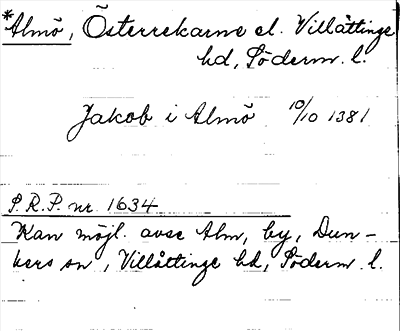 *Almö, Österrekarne el. Villåttinge
hd, Söderm. l.
Jakob i Almö 10/10 1381
S.R.P. nr 1634
Kan möjl. avse Alm, by, Dun-
kers sn, Villåttinge hd, Söderm. l.